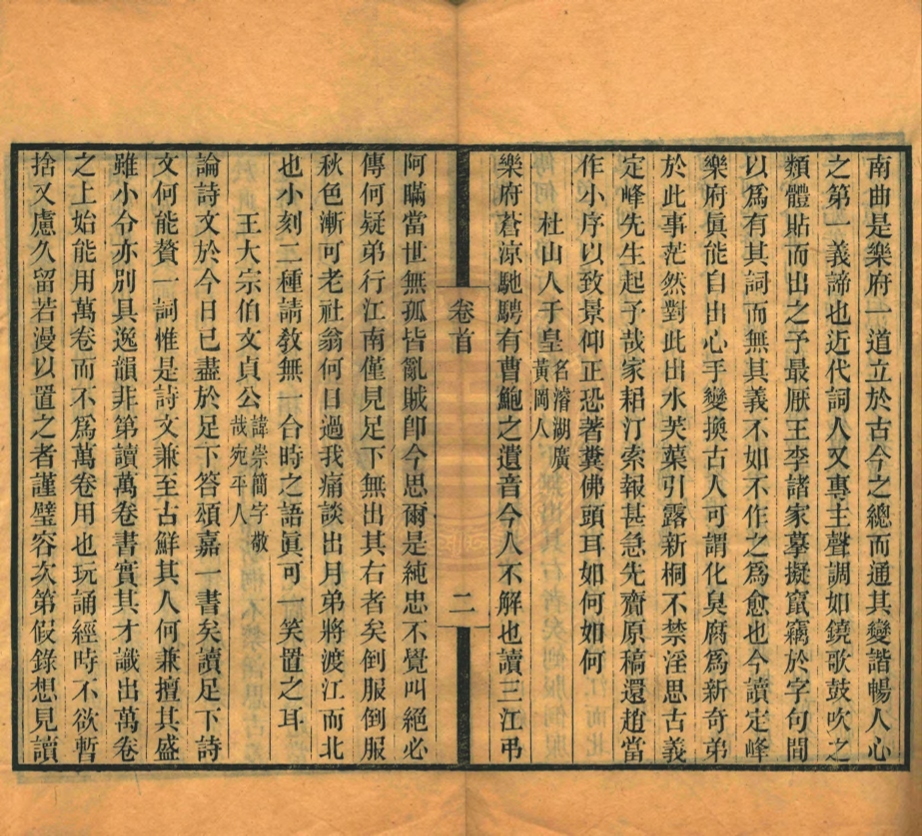 南曲是樂府一道立於古今之總而通其變諧暢人心
之第一義諦也近代詞人又專主聲調如鐃歌鼓吹之
類體貼而出之予最厭王李諸家摹擬竄竊於字句間
以爲有其詞而無其義不如不作之爲愈也今讀定峰
樂府眞能自出心手變換古人可謂化臭腐爲新奇弟
於此事茫然對此出水芙蕖引露新桐不禁淫思古義
定峰先生起予哉家耜汀索報甚急先齎原稿還趙當
作小序以致景仰正恐著糞佛頭耳如何如何
杜山人于皇名濬湖廣
黃岡人
樂府蒼涼馳騁有曹鮑之遺音今人不解也讀三江弔
卷首
二
阿瞞當世無孤皆亂賊卽今思爾是純忠不覺叫絕必
傳何疑弟行江南僅見足下無出其右者矣倒服倒服
秋色漸可老社翁何日過我痛談出月弟將渡江而北
也小刻二種請敎無一合時之語眞可一笑置之耳
王大宗伯文貞公諱崇簡字敬
哉宛平人
論詩文於今日已盡於足下答頌嘉一書矣讀足下詩
文何能贊一詞惟是詩文兼至古鮮其人何兼擅其盛
雖小令亦別具逸韻非第讀萬卷書實其才識出萬卷
之上始能用萬卷而不爲萬卷用也玩誦經時不欲暫
捨又慮久留若漫以置之者謹璧容次第假錄想見讀